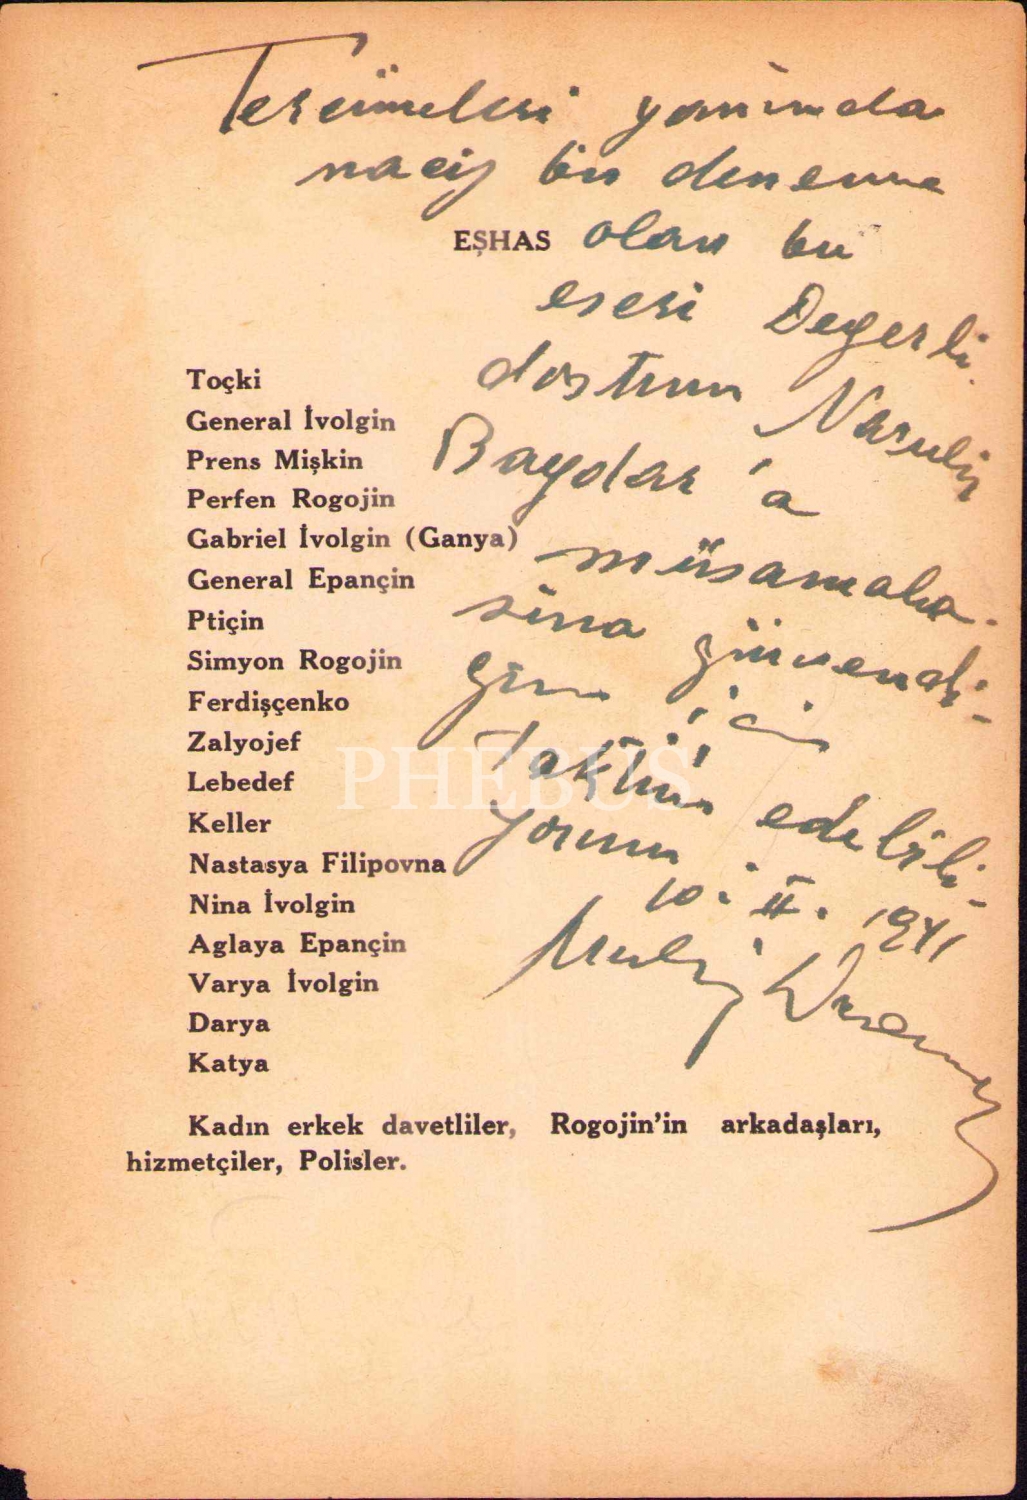 Tercümeleri yanında
naciz bir deneme
EŞHAS olan bu
eseri Değerli
dostum Nasuhi
Baydar'a
müsamaha-
sına güvendi-
ğim için
takdim edebili-
yorum
10. II. 1941
Toçki
General İvolgin
Prens Mişkin
Perfen Rogojin
Gabriel İvolgin (Ganya)
General Epançin
Ptiçin
Simyon Rogojin
Ferdişçenko
Zalyojef
Lebedef
Keller
Nastasya Filipovna
Nina İvolgin
Aglaya Epançin
Varya İvolgin
Darya
Katya
Kadın erkek davetliler, Rogojin'in arkadaşları,
hizmetçiler, Polisler.
PHEBUS